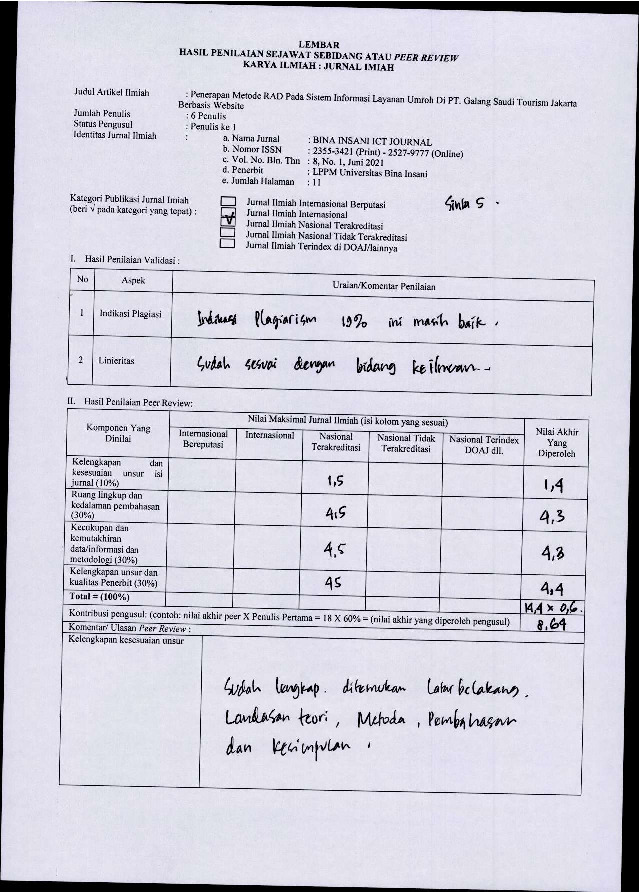 LEMBAR
HASIL PENILAIAN SEJAWAT SEBIDANG ATAU PEER REVIEW
KARYA ILMIAH : JURNAL IMIAH
Judul Artikel Ilmiah : Penerapan Metode RAD Pada Sistem Informasi Layanan Umroh Di PT. Galang Saudi Tourism Jakarta
Berbasis Website
Jumlah Penulis : 6 Penulis
Status Pengusul : Penulis ke 1
Identitas Jurnal Ilmiah : a. Nama Jurnal : BINA INSANI ICT JOURNAL
b. Nomor ISSN : 2355-3421 (Print) - 2527-9777 (Online)
c. Vol. No. Bln. Thn : 8, No. 1, Juni 2021
d. Penerbit : LPPM Universitas Bina Insani
e. Jumlah Halaman : 11
Kategori Publikasi Jurnal Imiah
(beri √ pada kategori yang tepat) :
Jurnal Ilmiah Internasional Berputasi
Jurnal Ilmiah Internasional
√ Jurnal Ilmiah Nasional Terakreditasi
Jurnal Ilmiah Nasional Tidak Terakreditasi
Jurnal Ilmiah Terindex di DOAJ/lainnya
Sinta 5 .
I. Hasil Penilaian Validasi :
No Aspek Uraian/Komentar Penilaian
1 Indikasi Plagiasi Indikasi Plagiarism 19% ini masih baik .
2 Linieritas Sudah sesuai dengan bidang keilmuan -
II. Hasil Penilaian Peer Review:
Komponen Yang
Dinilai
Nilai Maksimal Jurnal Ilmiah (isi kolom yang sesuai)
Internasional
Bereputasi
Internasional
Nasional
Terakreditasi
Nasional Tidak
Terakreditasi
Nasional Terindex
DOAJ dll.
Nilai Akhir
Yang
Diperoleh
Kelengkapan dan
kesesuaian unsur isi
jurnal (10%) 1,5 1,4
Ruang lingkup dan
kedalaman pembahasan
(30%) 4,5 4,3
Kecukupan dan
kemutakhiran
data/informasi dan
metodologi (30%) 4,5 4,3
Kelengkapan unsur dan
kualitas Penerbit (30%) 45 4,4
Total = (100%) 14,4 x 0,6.
Kontribusi pengusul: (contoh: nilai akhir peer X Penulis Pertama = 18 X 60% = (nilai akhir yang diperoleh pengusul) 8,64
Komentar/ Ulasan Peer Review :
Kelengkapan kesesuaian unsur
Sudah lengkap. ditemukan Latar belakang,
Landasan teori , Metoda , Pembahasan
dan kesimpulan .